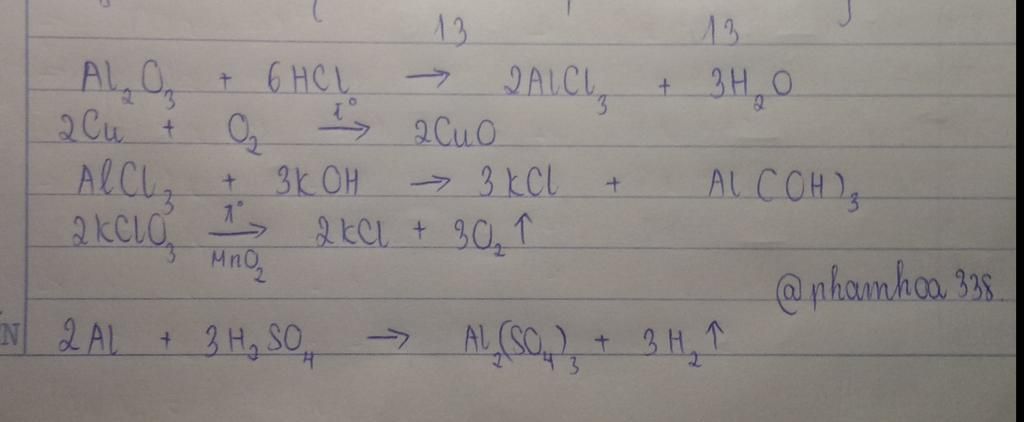 13 13
Al₂O₃ + 6HCl → 2AlCl₃ + 3H₂O
2Cu + O₂ →(t°) 2CuO
AlCl₃ + 3KOH → 3KCl + Al(OH)₃
2KClO₃ →(t°, MnO₂) 2KCl + 3O₂↑
@phamhoa338
N 2Al + 3H₂SO₄ → Al₂(SO₄)₃ + 3H₂↑